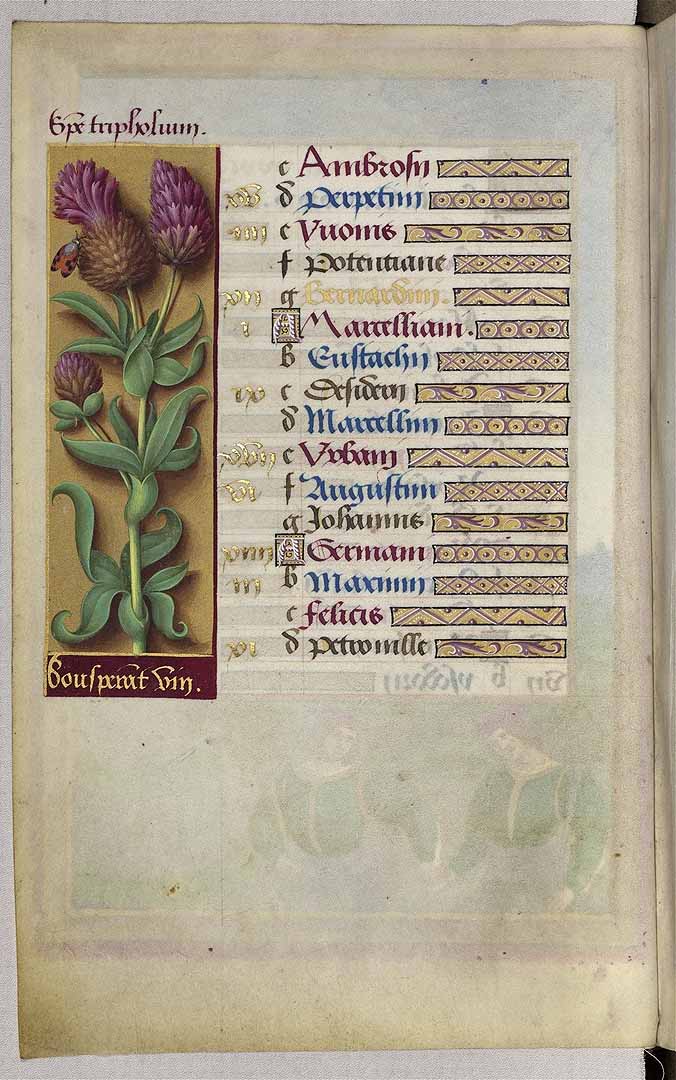 Spẽ tripholium.
c Ambrosii
xv d Perpetini
iiii e Yuonis
f Potentiane
xii g Bernardini.
i A Marcelliani.
b Eustachii
ix c Desiderii
d Marcellini
xvii e Vrbani
vi f Augustini
g Johannis
xiiii A Germani
iii b Maximi
c felicis
xi d Petronille